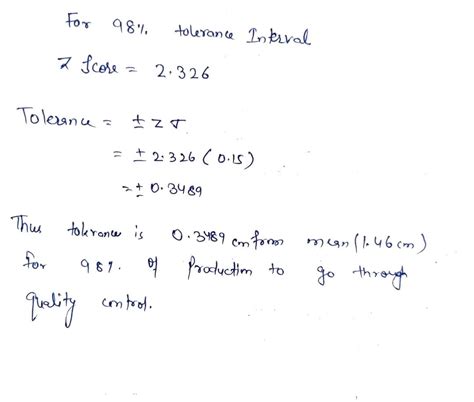 For 98% tolerance Interval
Z Score = 2.326
Tolerance = ± z σ
= ± 2.326 (0.15)
= ± 0.3489
Thus tolerance is 0.3489 cm from mean (1.46 cm)
for 98% of Production to go through
quality control.